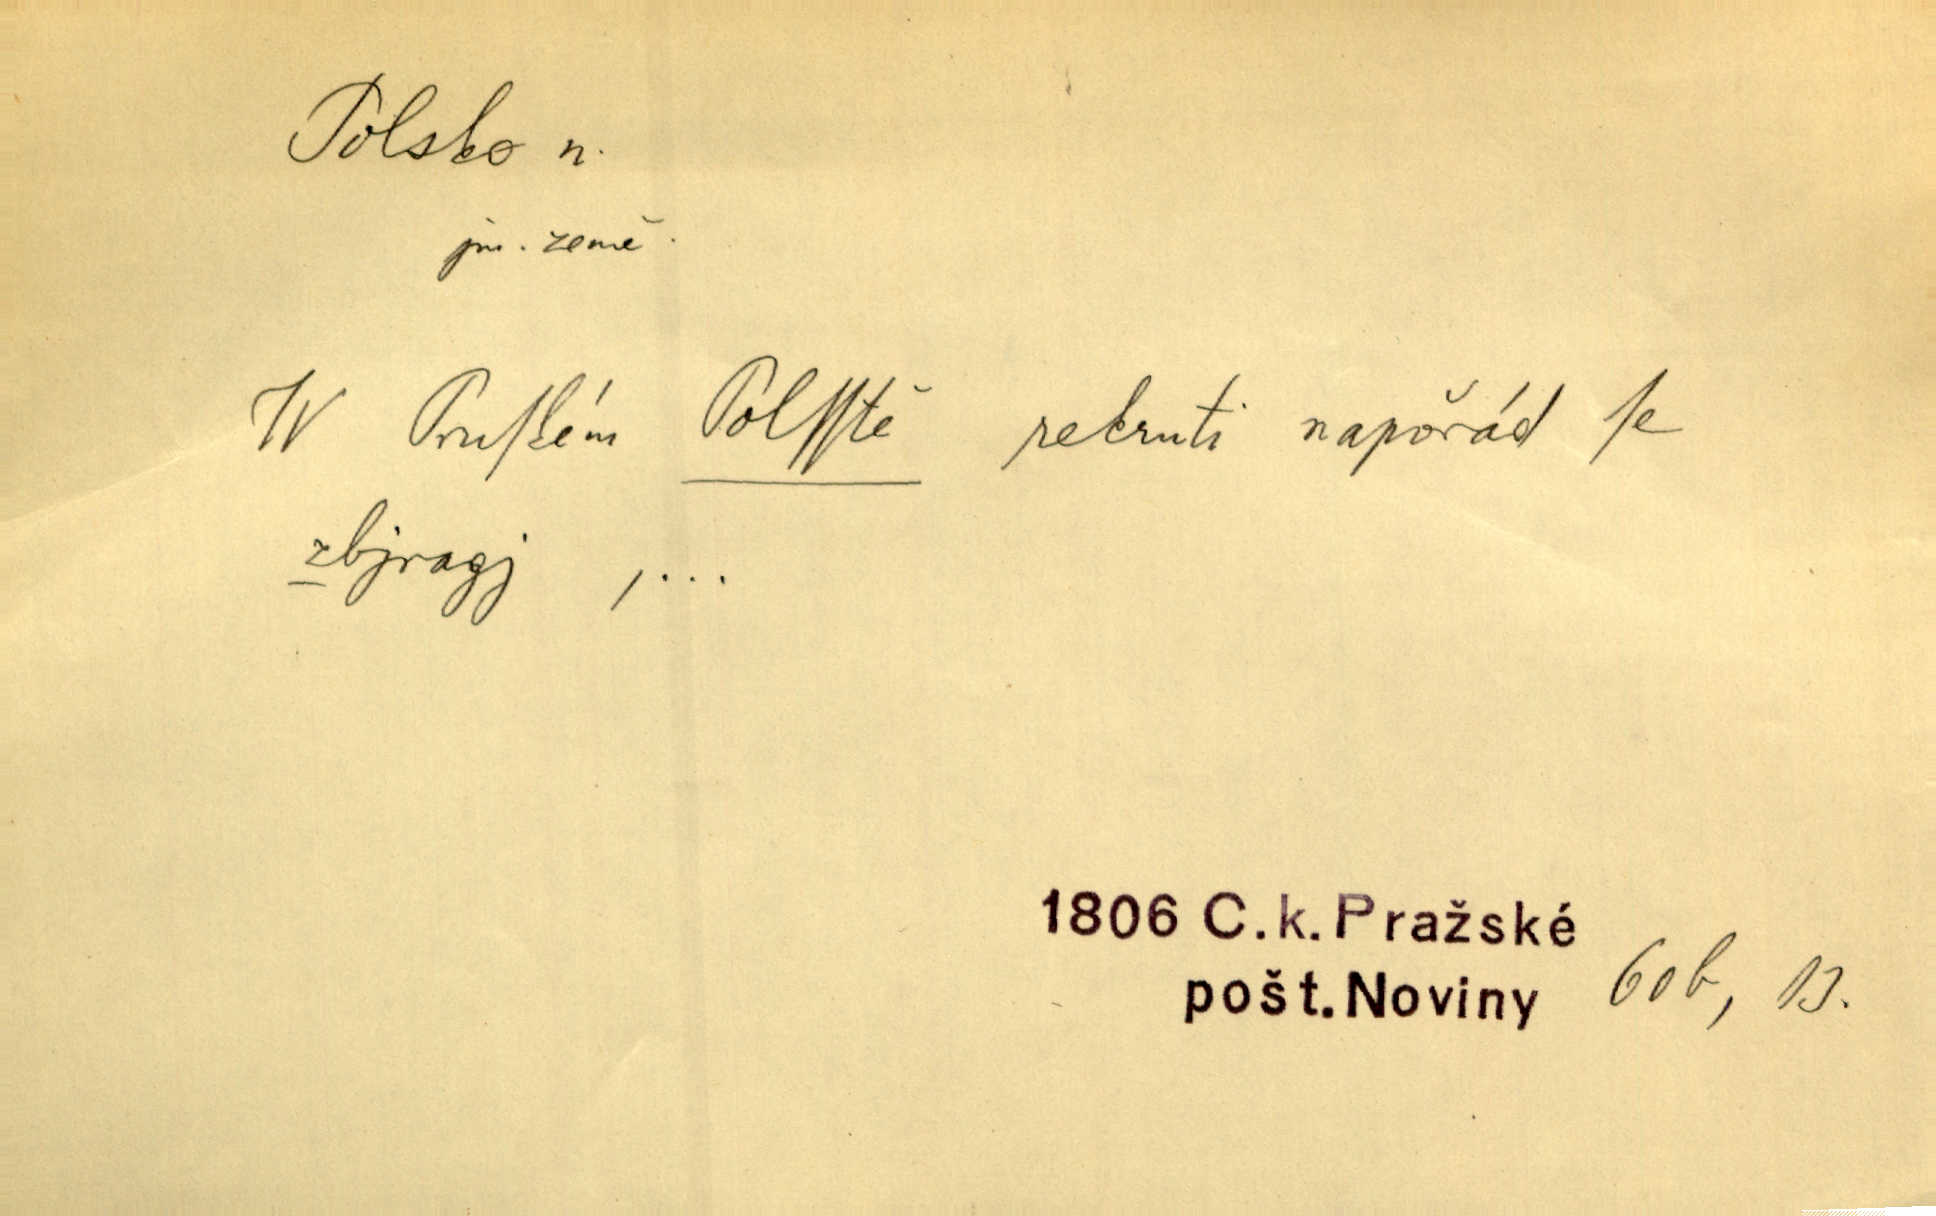 Polsko n.
jm. země.
W Pruſkém Polſſtě rekruti napořád ſe
zbjragj , ...
1806 C.k. Pražské
pošt. Noviny 60b, 13.